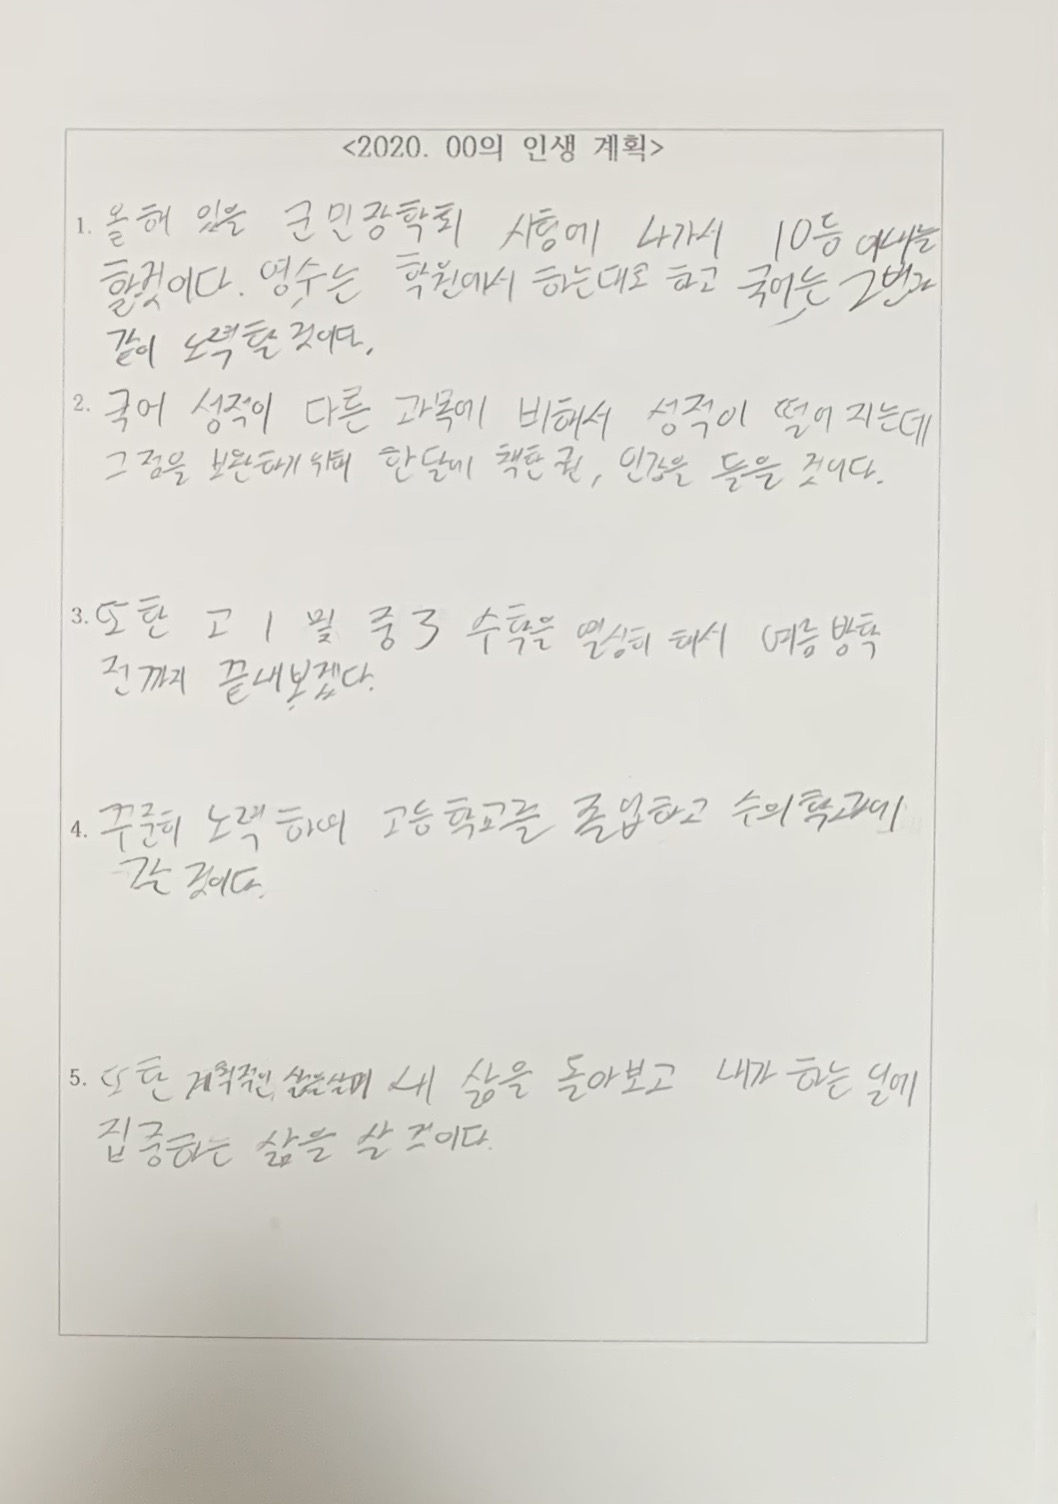 <2020. 00의 인생 계획>
1. 올해 있을 군민장학회 시험에 나가서 10등 이내는
할것이다. 영수는 학원에서 하는대로 하고 국어는 2번과
같이 노력할 것이다.
2. 국어 성적이 다른 과목에 비해서 성적이 떨어지는데
그 점을 보완하기 위해 한달에 책한권, 인강을 들을 것이다.
3. 또한 고1 및 중3 수학을 열심히 해서 여름방학
전까지 끝내보겠다.
4. 꾸준히 노력하여 고등학교를 졸업하고 수의학과에
갈 것이다.
5. 또한 계획적인 삶을살며 내 삶을 돌아보고 내가 하는 일에
집중하는 삶을 살 것이다.